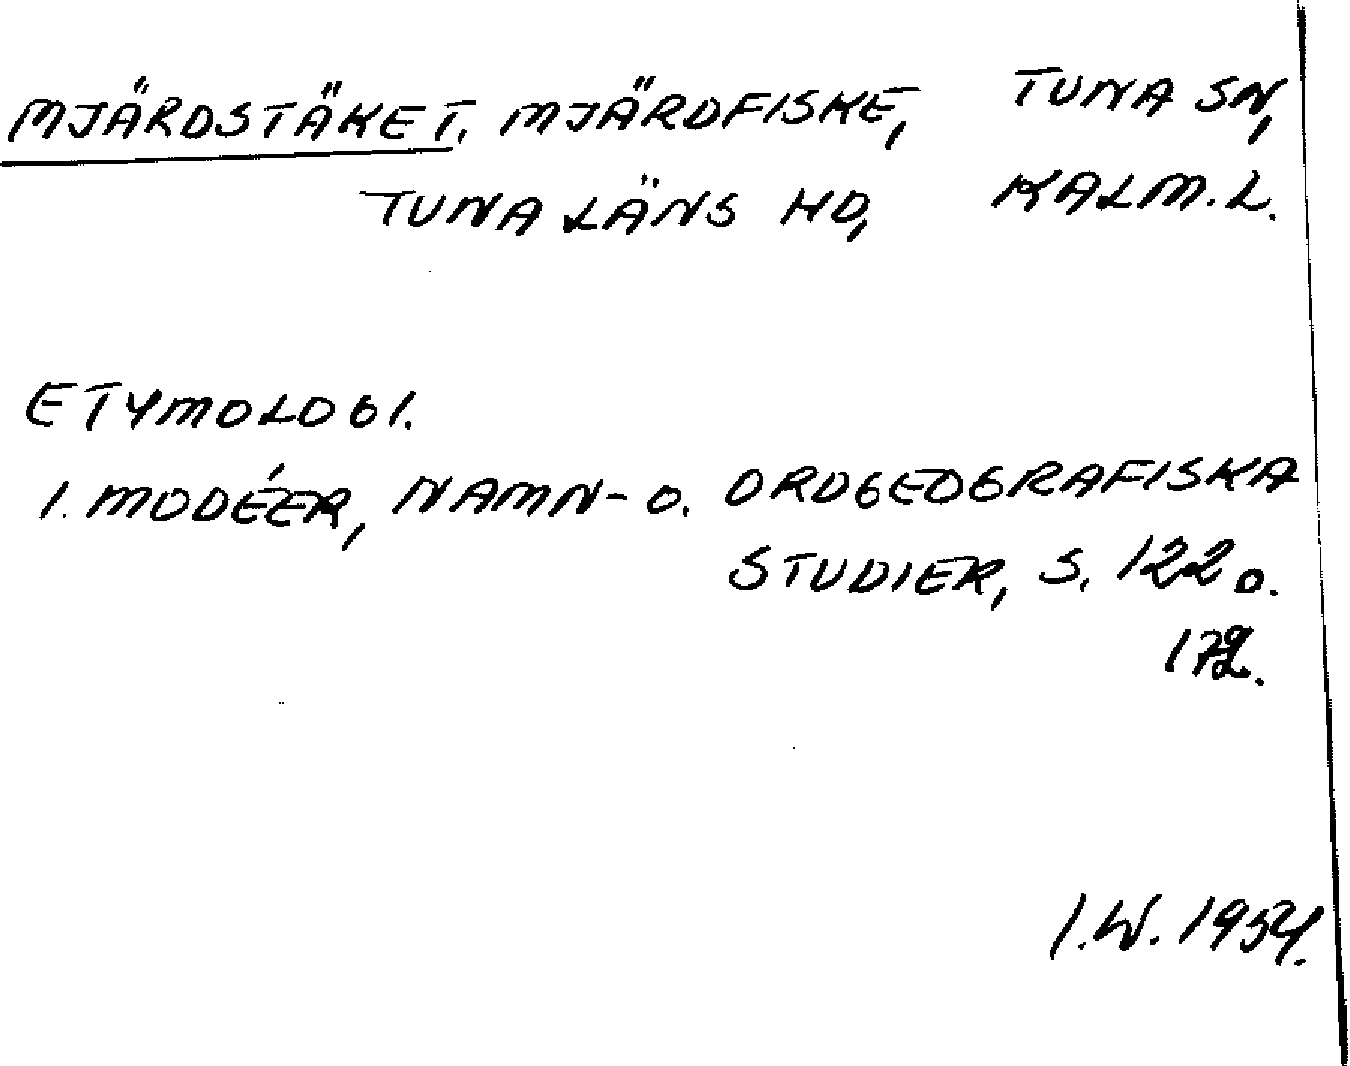 MJÄRDSTÄKET. MJÄRDFISKE, TUNA SN,
TUNALÄNS HD, KALM. L.
ETYMOLOGI.
I. MODÉER, NAMN- O. ORDGEOGRAFISKA
STUDIER, S. 122 O.
179.
I.W. 1954.